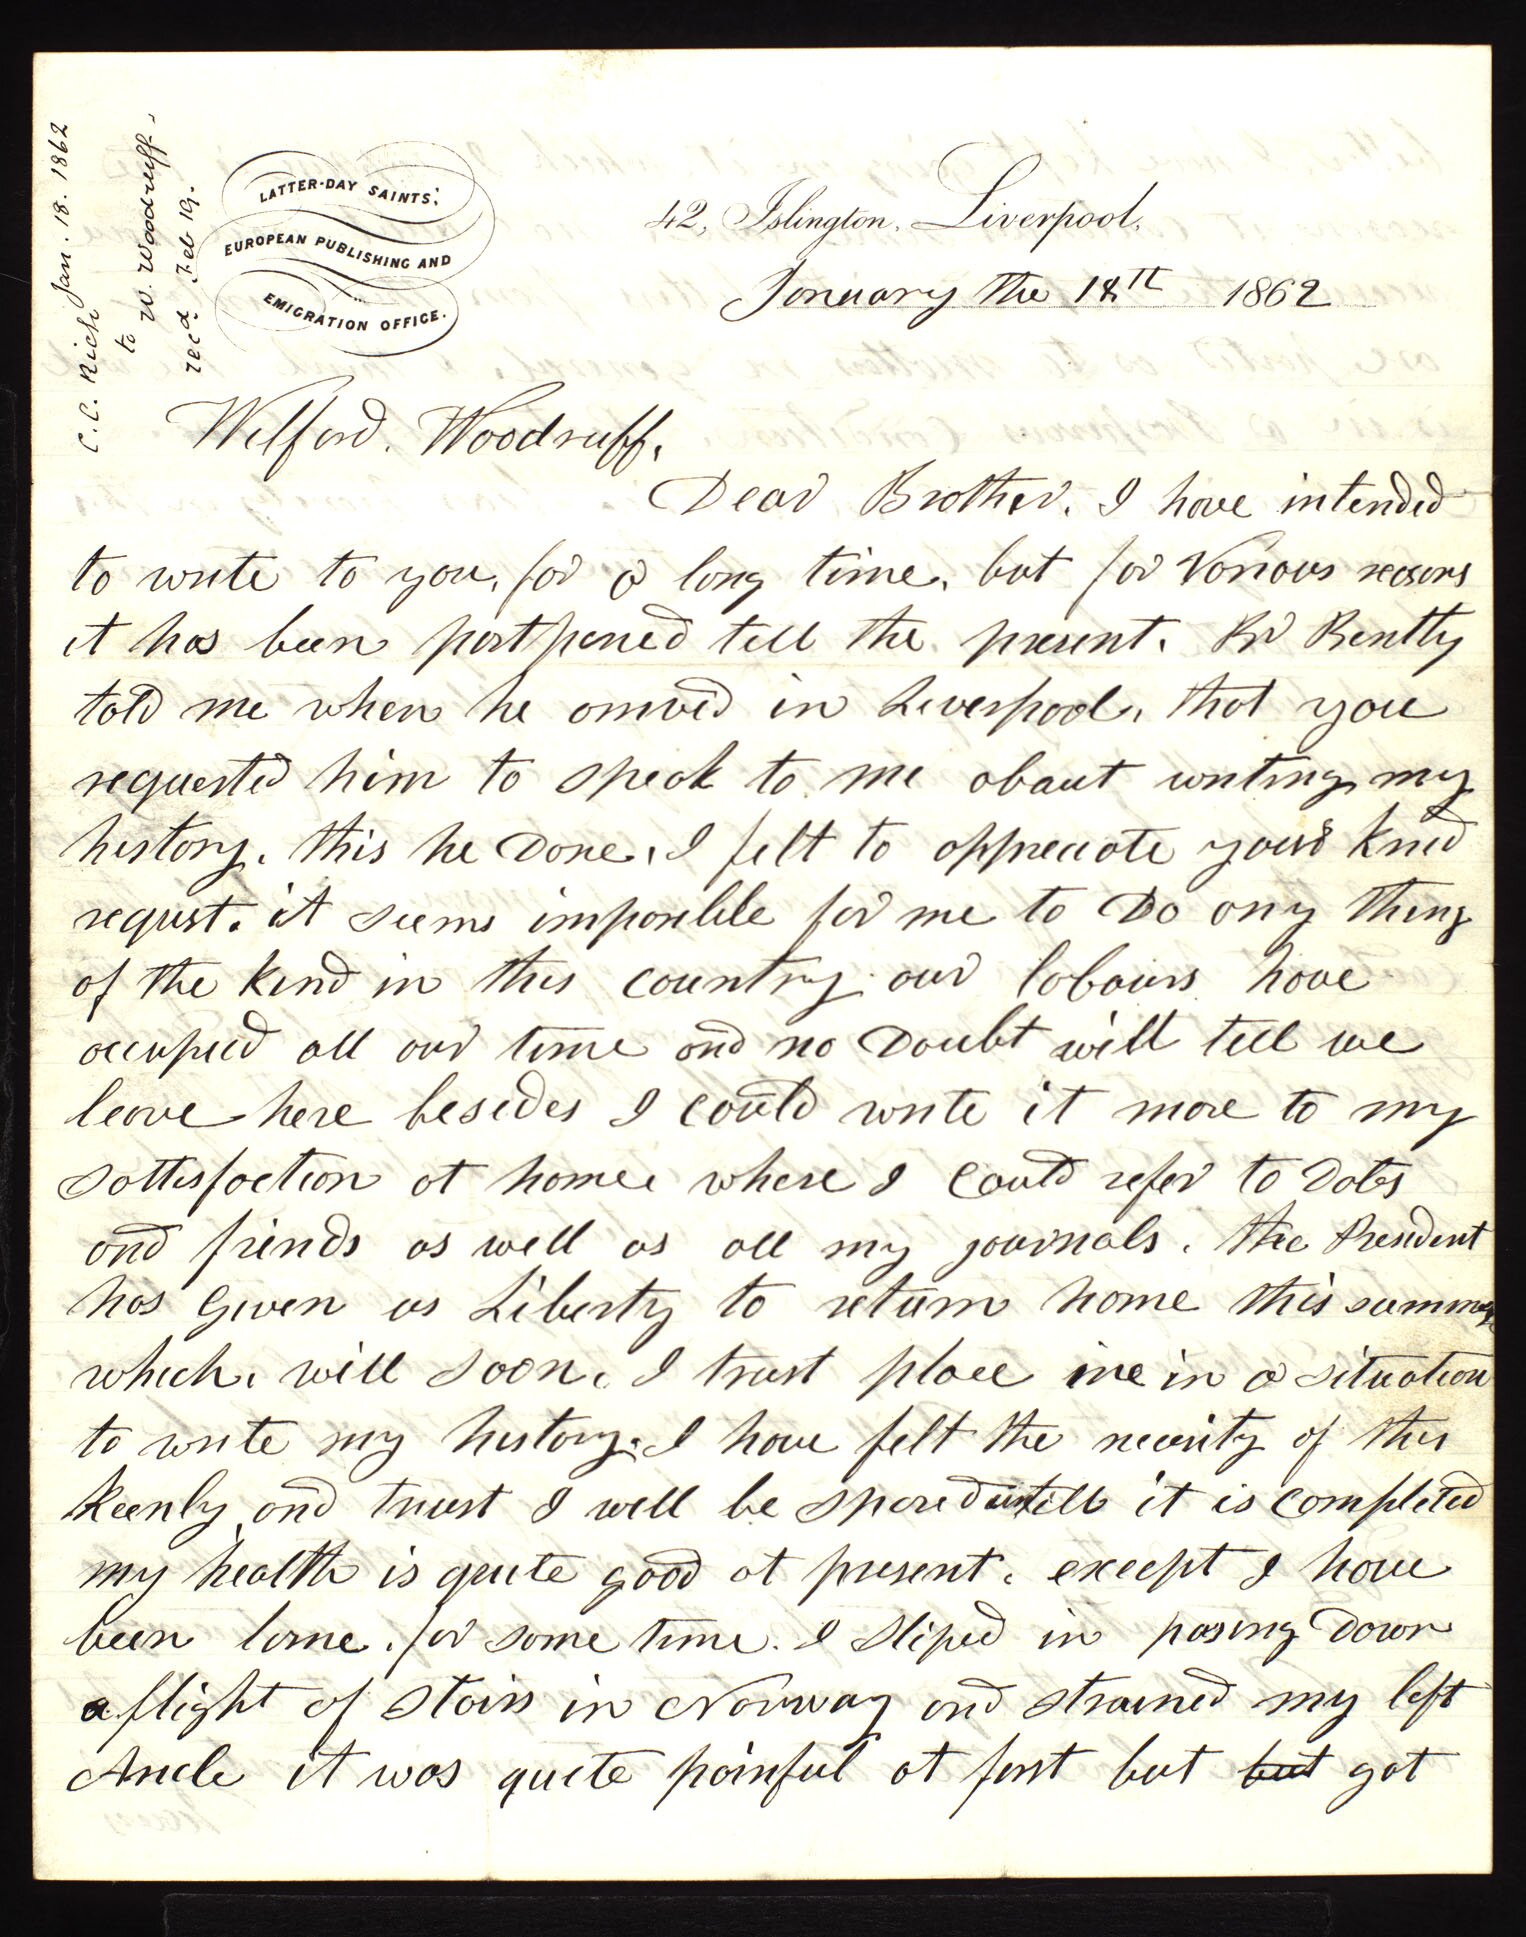 C. C. Rich Jan. 18. 1862
to
W. Woodruff.
recd. Feb 19.
LATTER-DAY SAINTS'
EUROPEAN PUBLISHING AND
EMIGRATION OFFICE.
42, Islington, Liverpool,
January the 18th 1862
Wilford. Woodruff.
Dear Brother. I have intended
to write to you, for a long time, but for Various reasons
it has been postponed till the present. Br Bently
told me when he arrived in Liverpool, that you
requested him to speak to me about writing my
history. this he Done, I felt to appreciate your kind
requst. it seems imposible for me to Do any thing
of the kind in this country our labours have
occupied all our time and no Doubt will till we
leave here besides I could write it more to my
sattisfaction at home where I could refer to Dates
and friends as well as all my journals. the President
has Given us Liberty to return home this summer
which, will soon, I trust place me in a situation
to write my history. I have felt the necesity of this
keenly and trust I will be spared untill it is completed
my health is quite good at present, except I have
been lame. for some time. I sliped in pasing Down
a flight of stairs in Norway and strained my left
Ancle it was quite painful at first but but got